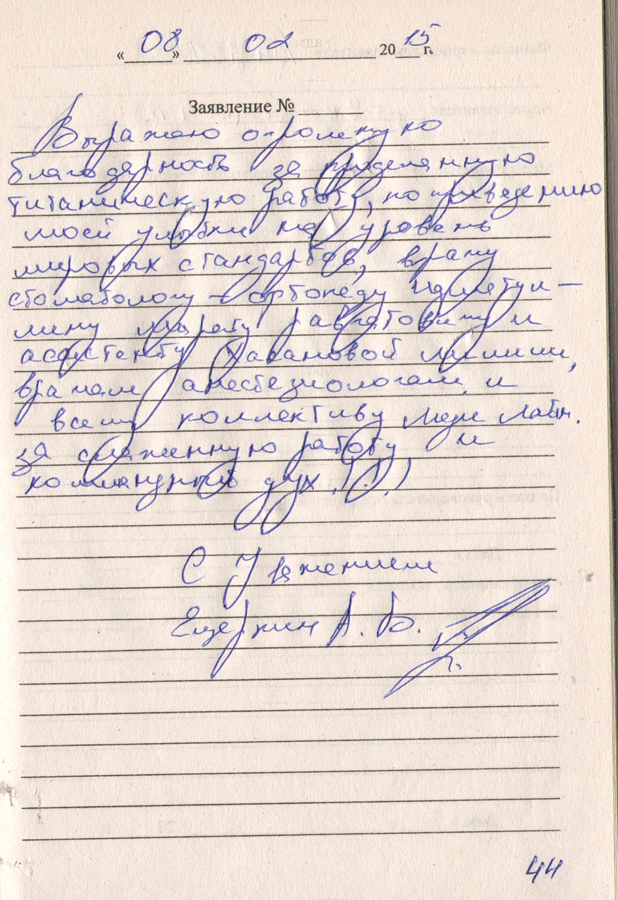 « 08 » 02 2015 г.
Заявление №
Выражаю огромную
благодарность за проделанную
титаническую работу, по приведению
моей улыбки на уровень
мировых стандартов, врачу
стоматологу - ортопеду
Марату и
ассистенту Хасановой Лилии,
врачам анестезиологам и
всему коллективу Мере Лайн.
за слаженную работу и
коммандный дух!!!)
С Уважением
Ещеркин А. Б.
44